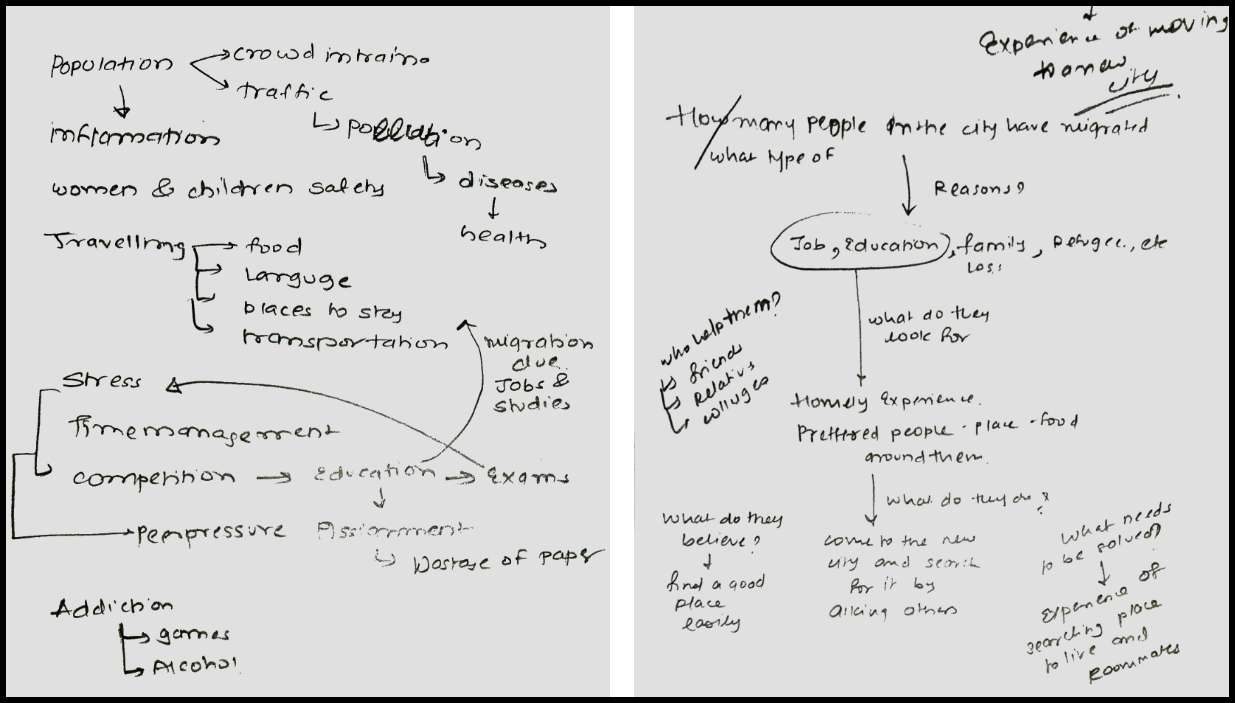 Population
crowd in train
traffic
pollution
diseases
health
inflamation
women & children safety
Travelling
food
Languge
places to stay
transportation
migration
due
Jobs &
studies
Stress
Time management
competition
Education
Exams
Peer pressure
Assignment
Wastage of paper
Addiction
games
Alcohol
Experience of moving
to a new
city
How many people in the city have migrated
what type of
Reasons?
Job, Education, family, Refugee, etc
Loss
what do they
look for
who help them?
friends
Relatives
Homely Experience.
Preffered people - place - food
around them.
what do they do?
What do they
believe?
find a good
place
easily
come to the new
city and search
for it by
asking others
What needs
to be solved?
Experience of
searching place
to live and
Roommates